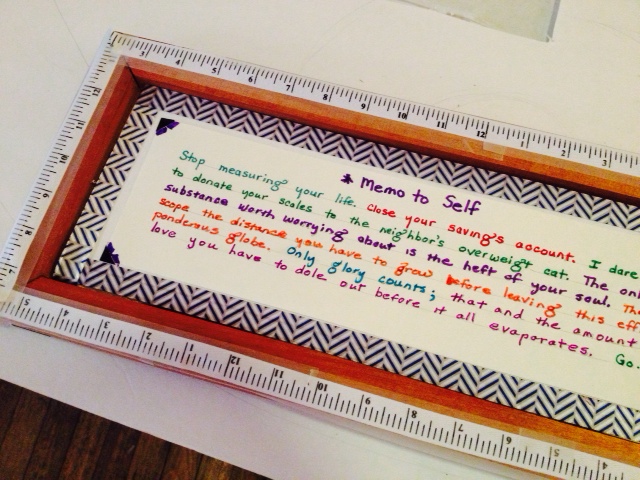 * Memo to Self
Stop measuring your life. Close your saving's account. I dare
to donate your scales to the neighbor's overweight cat. The onl
substance worth worrying about is the heft of your soul. Th
scope the distance you have to grow before leaving this eff
ponderous globe. Only glory counts; that and the amount
love you have to dole out before it all evaporates. Go.
3 4 5 6 7 8 9 10 11 12 1 2 3
5 4 3 2 1 12 11 10 9 8 7 6 5